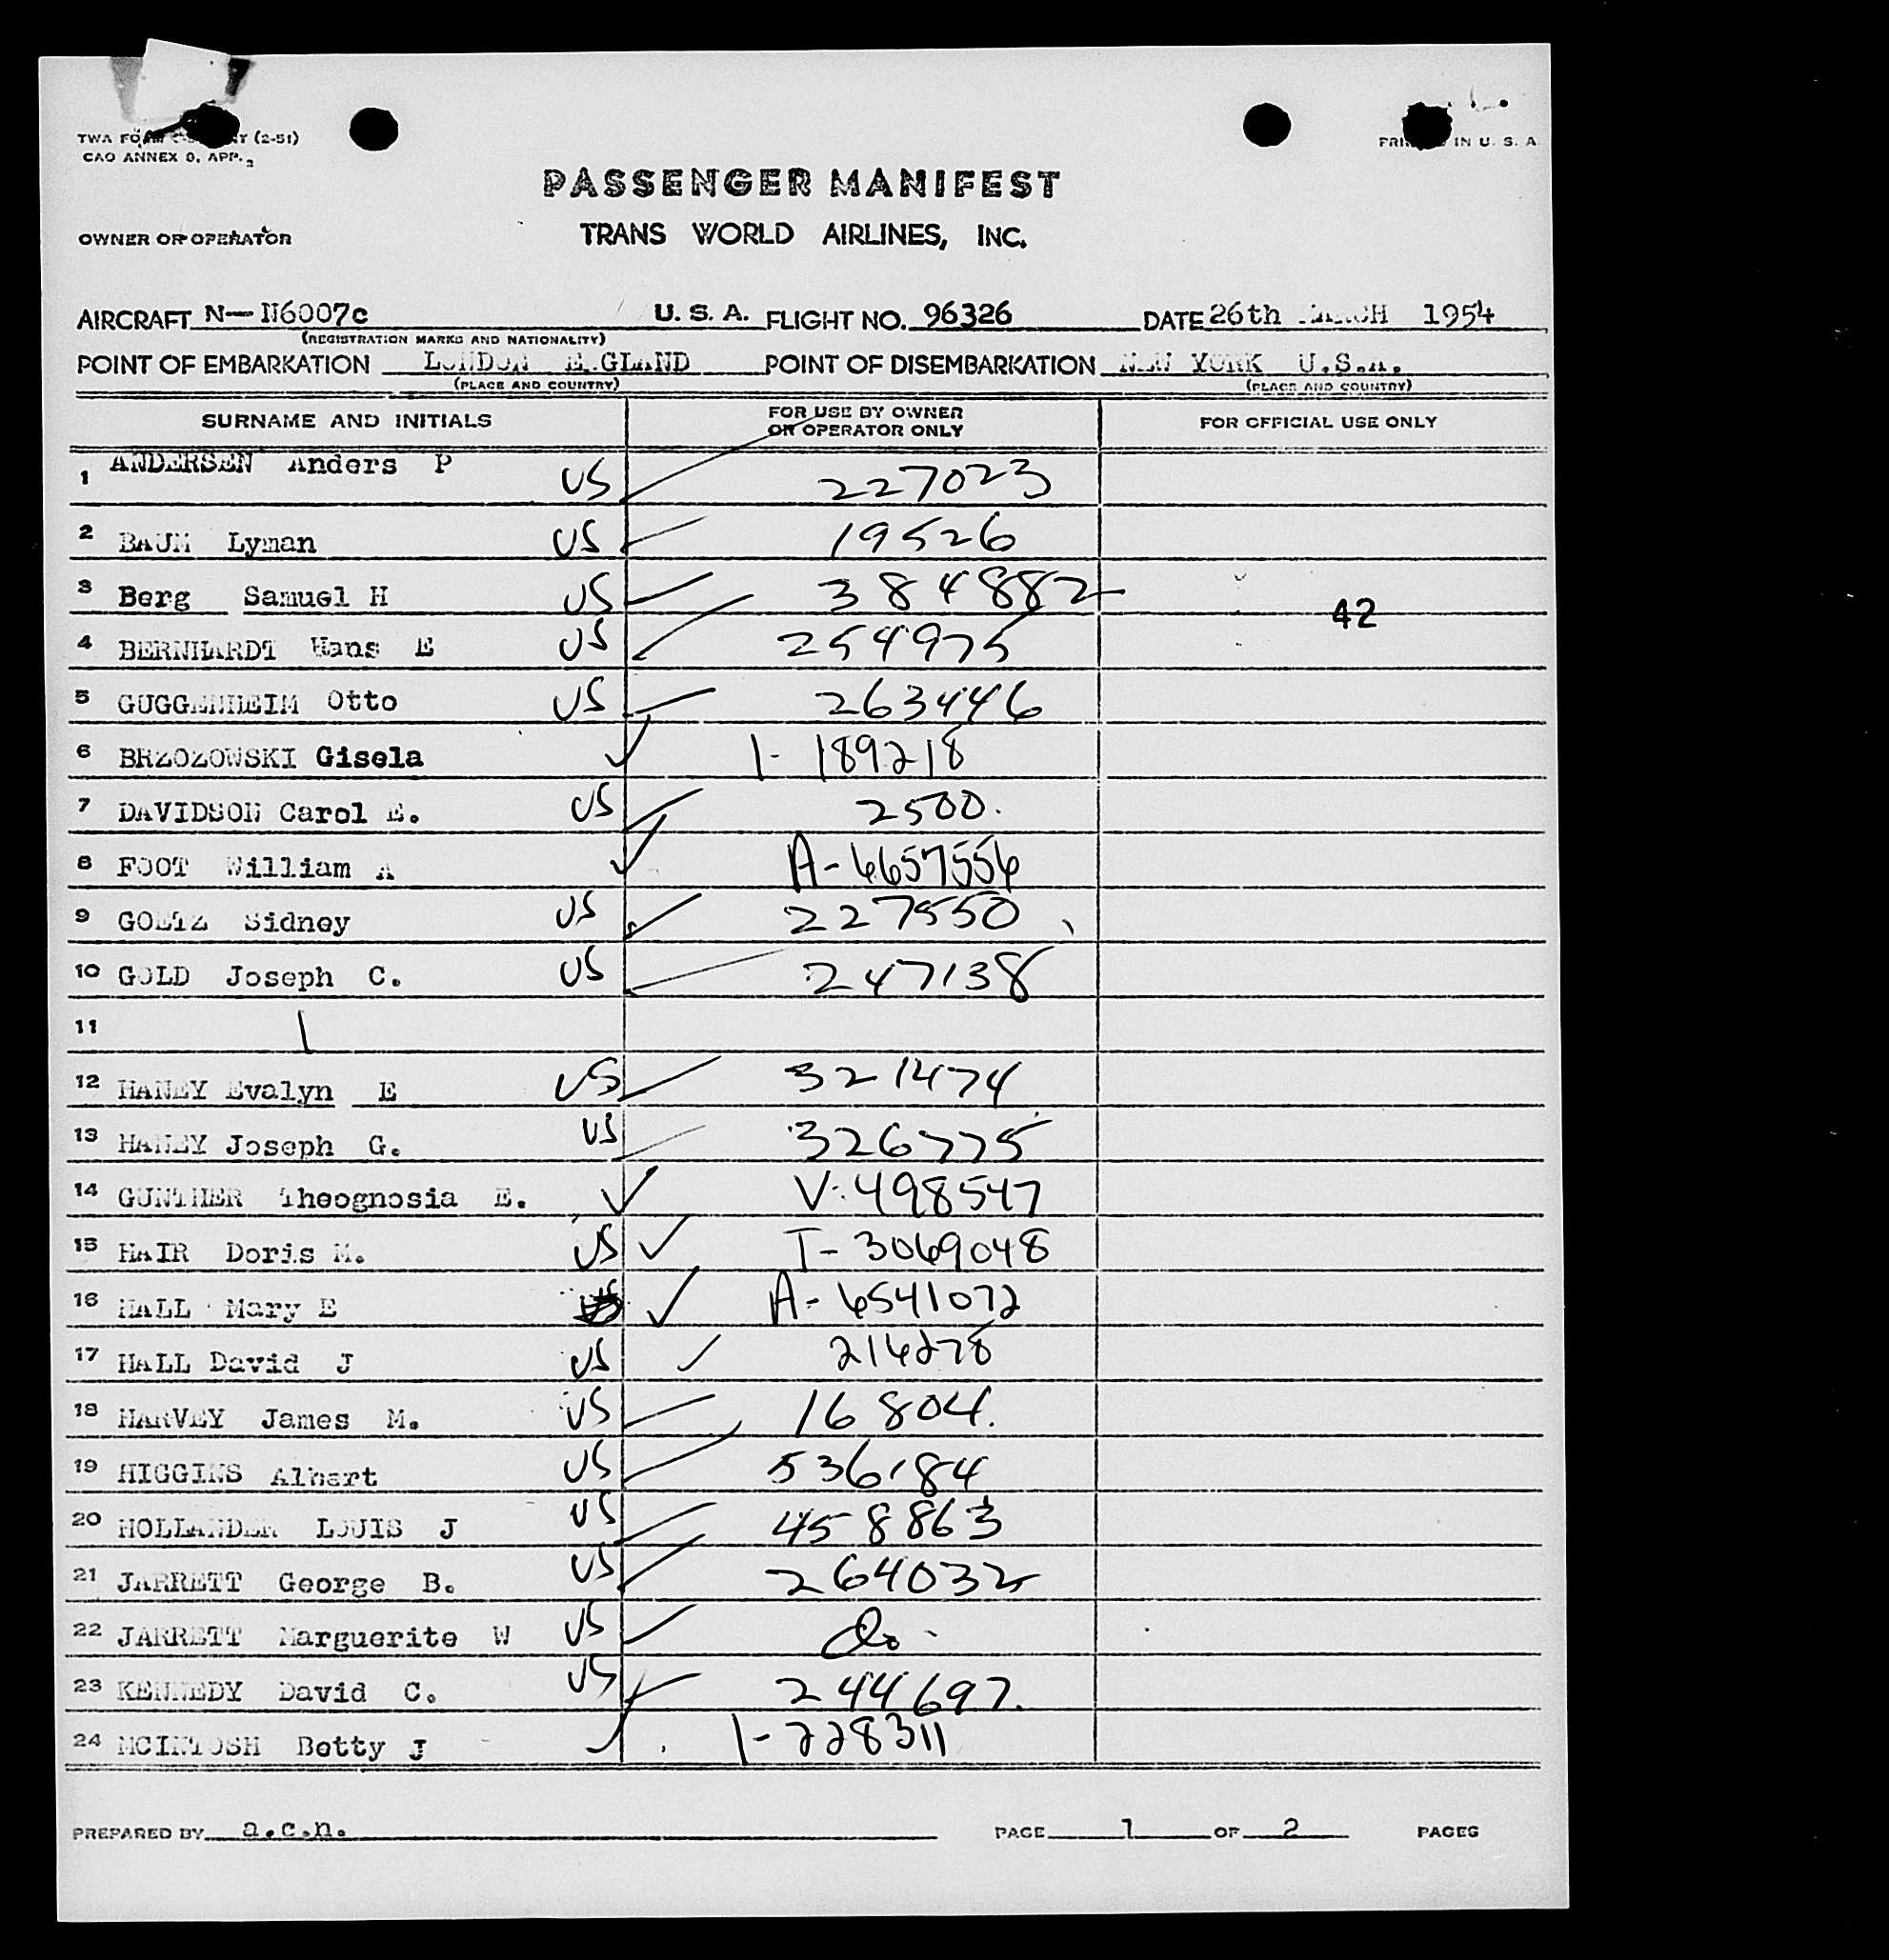 TWA FORM (2-51)
CAO ANNEX 9, APP. 2
PRINTED IN U. S. A.
PASSENGER MANIFEST
OWNER OR OPERATOR
TRANS WORLD AIRLINES, INC.
AIRCRAFT N— N6007c U. S. A. FLIGHT NO. 96326 DATE 26th MARCH 1954
(REGISTRATION MARKS AND NATIONALITY)
POINT OF EMBARKATION LONDON ENGLAND POINT OF DISEMBARKATION NEW YORK U.S.A.
(PLACE AND COUNTRY) (PLACE AND COUNTRY)
SURNAME AND INITIALS FOR USE BY OWNER OR OPERATOR ONLY FOR OFFICIAL USE ONLY
1 ANDERSEN Anders P US 227023
2 BAUM Lyman US 19526
3 Berg Samuel H US 384882
42
4 BERNHARDT Hans E US 254975
5 GUGGENHEIM Otto US 263446
6 BRZOZOWSKI Gisela 1- 189218
7 DAVIDSON Carol E. US 2500.
8 FOOT William A A-6657556
9 GOETZ Sidney US 227550
10 GOLD Joseph C. US 247138
11
12 HANEY Evalyn E US 321474
13 HANEY Joseph G. US 326775
14 GUNTHER Theognosia E. V-498547
15 HAIR Doris M. US T-3069048
16 HALL Mary E US A-6541072
17 HALL David J US 216278
18 HARVEY James M. US 16804.
19 HIGGINS Albert US 536184
20 HOLLANDER LOUIS J US 458863
21 JARRETT George B. US 264032
22 JARRETT Marguerite W US do-
23 KENNEDY David C. US 244697.
24 MCINTOSH Betty J 1-228311
PREPARED BY a.c.n. PAGE 1 OF 2 PAGES